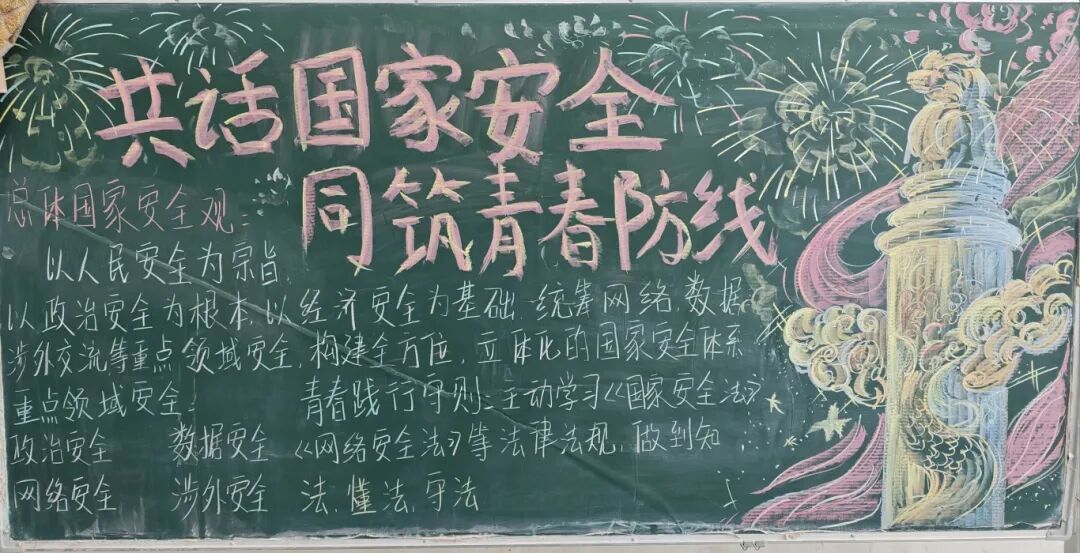 共话国家安全
同筑青春防线
总体国家安全观：
以人民安全为宗旨，
以政治安全为根本，以经济安全为基础，统筹网络，数据
涉外交流等重点领域安全，构建全方位，立体化的国家安全体系
重点领域安全：
政治安全 数据安全
网络安全 涉外安全
青春践行守则：主动学习《国家安全法》
《网络安全法》等法律法规，做到知
法，懂法，守法